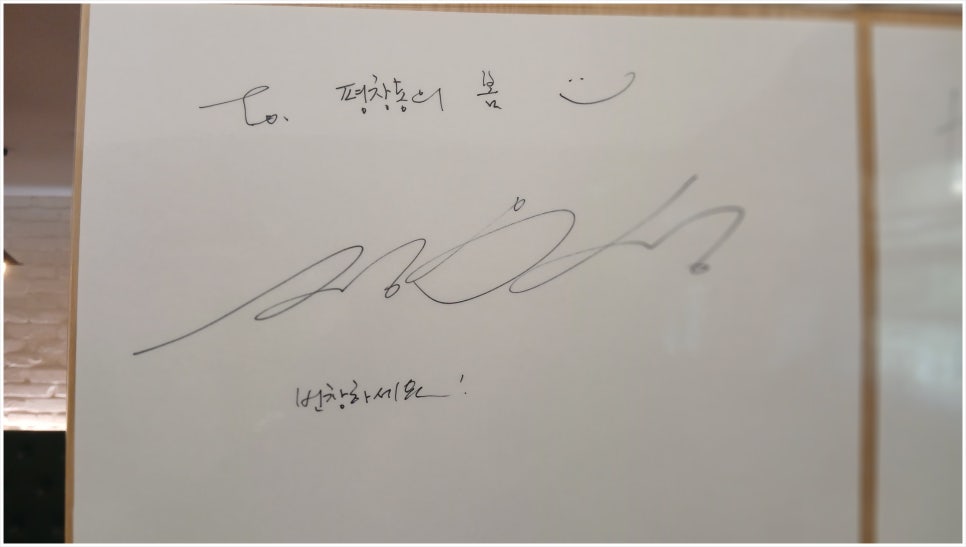 To. 평창동의 봄
번창하세요!